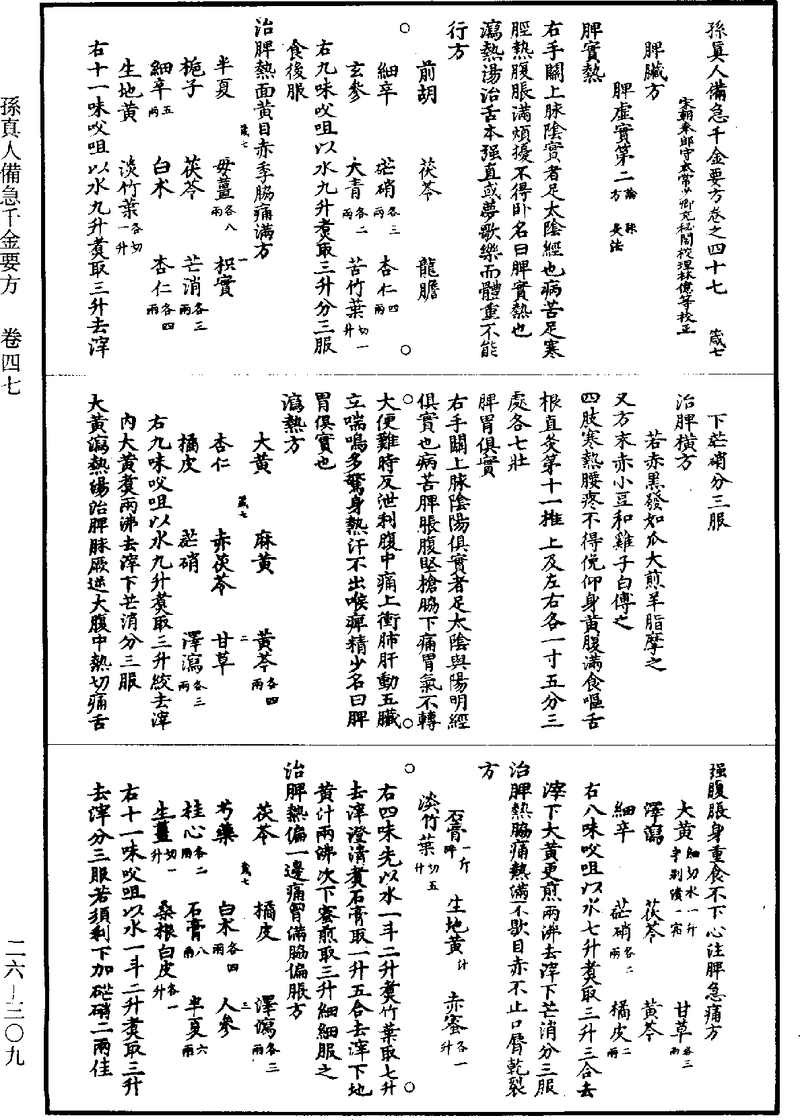 孫眞人備急千金要方卷之四十七 箴七
宋朝奉郎守太常少卿充秘閣校理林億等校正
脾臟方
脾虛實第二論 脉 方 灸法
脾實熱
右手關上脉陰實者足太陰經也病苦足寒
脛熱腹脹滿煩擾不得卧名曰脾實熱也
瀉熱湯治舌本强直或夢歌樂而體重不能
行方
前胡 茯苓 龍膽
細辛 芒硝各三兩 杏仁四兩
玄參 大青各二兩 苦竹葉切一升
右九味㕮咀以水九升煑取三升分三服
食後服
治脾熱面黃目赤季脇痛滿方
半夏 母薑各八兩 枳實
梔子 茯苓 芒消各三兩
細辛五兩 白术 杏仁各四兩
生地黃 淡竹葉各切一升
右十一味㕮咀以水九升煑取三升去滓
下芒硝分三服
治脾橫方
若赤黑發如瓜大煎羊脂摩之
又方末赤小豆和雞子白傅之
四肢寒熱腰疼不得俛仰身黃腹滿食嘔舌
根直灸第十一椎上及左右各一寸五分三
處各七壯
脾胃俱實
右手關上脉陰陽俱實者足太陰與陽明經
俱實也病苦脾脹腹堅槍脇下痛胃氣不轉
大便難時反泄利腹中痛上衝肺肝動五臟
立喘鳴多驚身熱汗不出喉痺精少名曰脾
胃俱實也
瀉熱方
大黃 麻黃 黃芩各四兩
杏仁 赤茯苓 甘草
橘皮 芒硝 澤瀉各三兩
右九味㕮咀以水九升煑取三升絞去滓
內大黃煑兩沸去滓下芒消分三服
大黃瀉熱湯治脾脉厥逆大腹中熱切痛舌
强腹脹身重食不下心注脾急痛方
大黃細切水一升半別漬一宿 甘草各三兩
澤瀉 茯苓 黃芩
細辛 芒硝各二兩 橘皮二兩
右八味㕮咀以水七升煑取三升三合去
滓下大黃更煎兩沸去滓下芒消分三服
治脾熱脇痛熱滿不歇目赤不止口脣乾裂
方
石膏一斤碎 生地黃汁 赤蜜各一升
淡竹葉切五升
右四味先以水一斗二升煑竹葉取七升
去滓澄清煑石膏取一升五合去滓下地
黃汁兩沸次下蜜煎取三升細細服之
治脾熱偏一邊痛胷滿脇偏脹方
茯苓 橘皮 澤瀉各三兩
芍藥 白术各四兩 人參
桂心各二兩 石膏八兩 半夏六兩
生薑切一升 桑根白皮各一升
右十一味㕮咀以水一斗二升煑取三升
去滓分三服若須利下加芒硝二兩佳
孫真人備急千金要方 卷四七
二六—三〇九